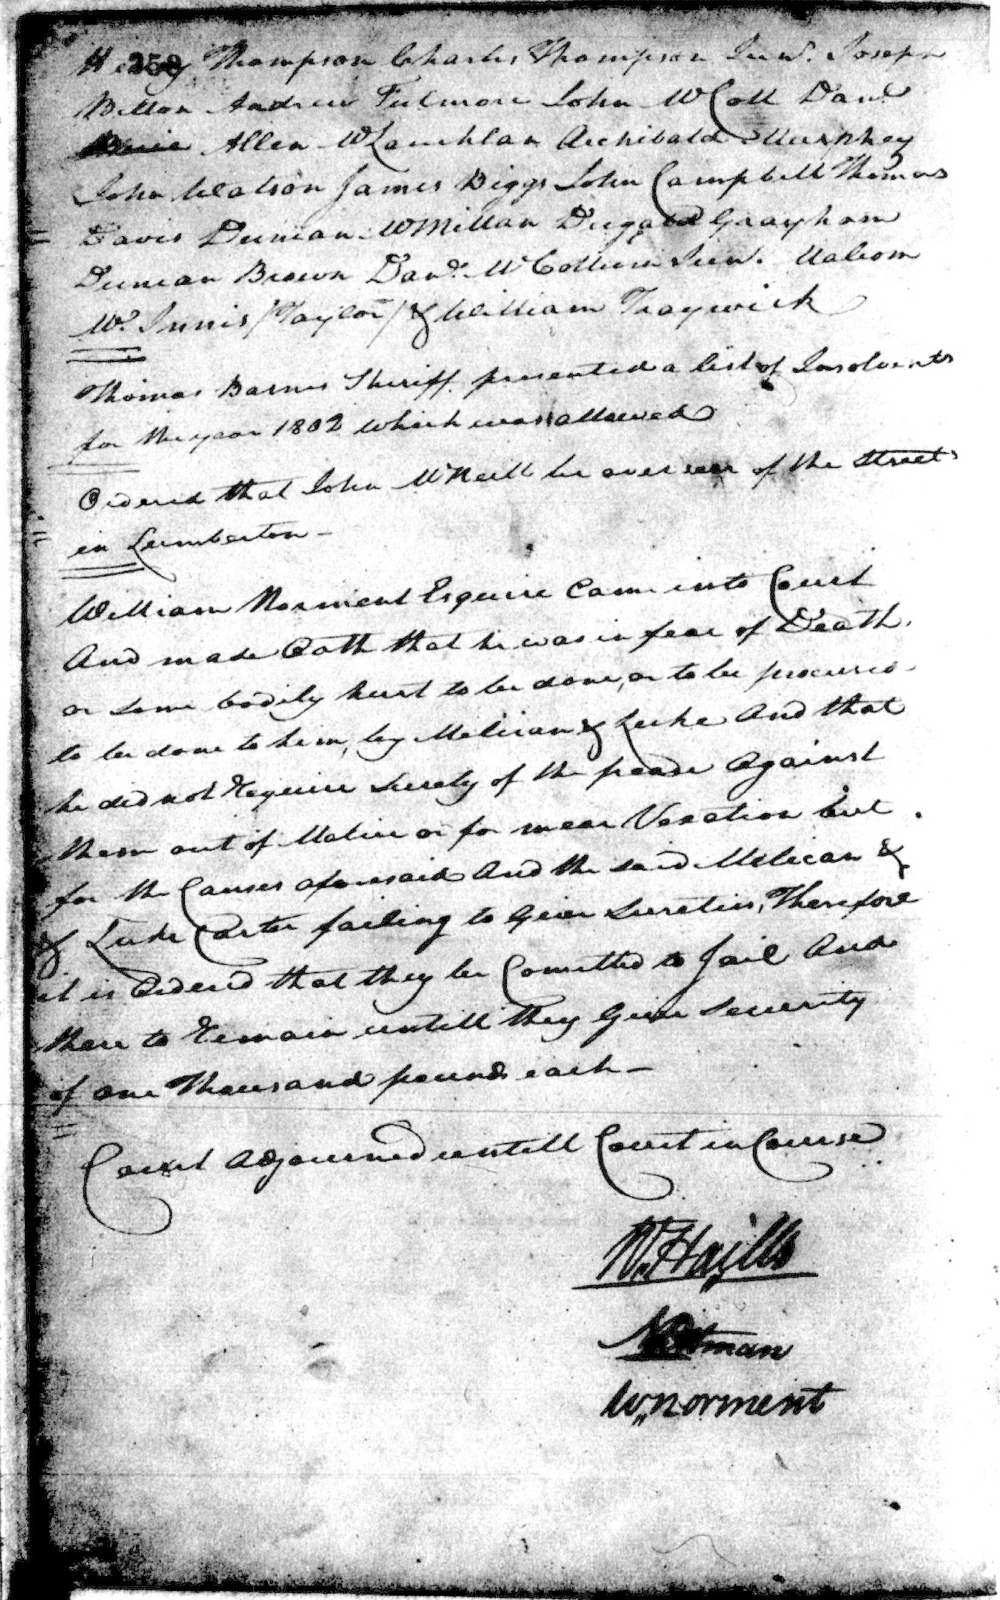 258
Henry Thompson Charles Thompson Junr. Joseph
Bitton Andrew Fulmore John McColl Danl.
Allen McLauchlan Archibald Murphey
John Watson James Biggs John Campbell Thomas
Davis Duncan McMillan Dugald Grayham
Duncan Brown Danl. McCollum Junr. Malcom
Mc. Innis (Taylor) & William Traywick
Thomas Barnes Sheriff presented a list of Insolvents
for the year 1802 which was allowed
Ordered that John McNeill be overseer of the Streets
in Lumberton
William Norment Esquire Came into Court
And made Oath that he was in fear of Death,
or some bodily hurt to be done, or to be procured
to be done to him, by Melican & Luke And that
he did not Require Surety of the peace Against
them out of Malice or for mear Vexation but
for the Causes aforesaid And the said Melican &
& Luke Carter failing to Give Sureties, Therefore
it is Ordered that they be Comitted to Jail And
there to Remain untill they Give Security
of one Thousand pounds each
Court Adjourned untill Court in Course
W.
Pitman
W. norment